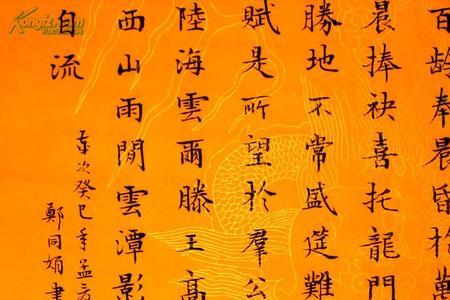 百齡奉晨昏於萬
晨捧袂喜托龍門
勝地不常盛筵難
賦是所望於羣公
陸海雲爾滕王高
西山雨閒雲潭影
自流
歲次癸巳年孟
鄭同娟書
Kongfz.com